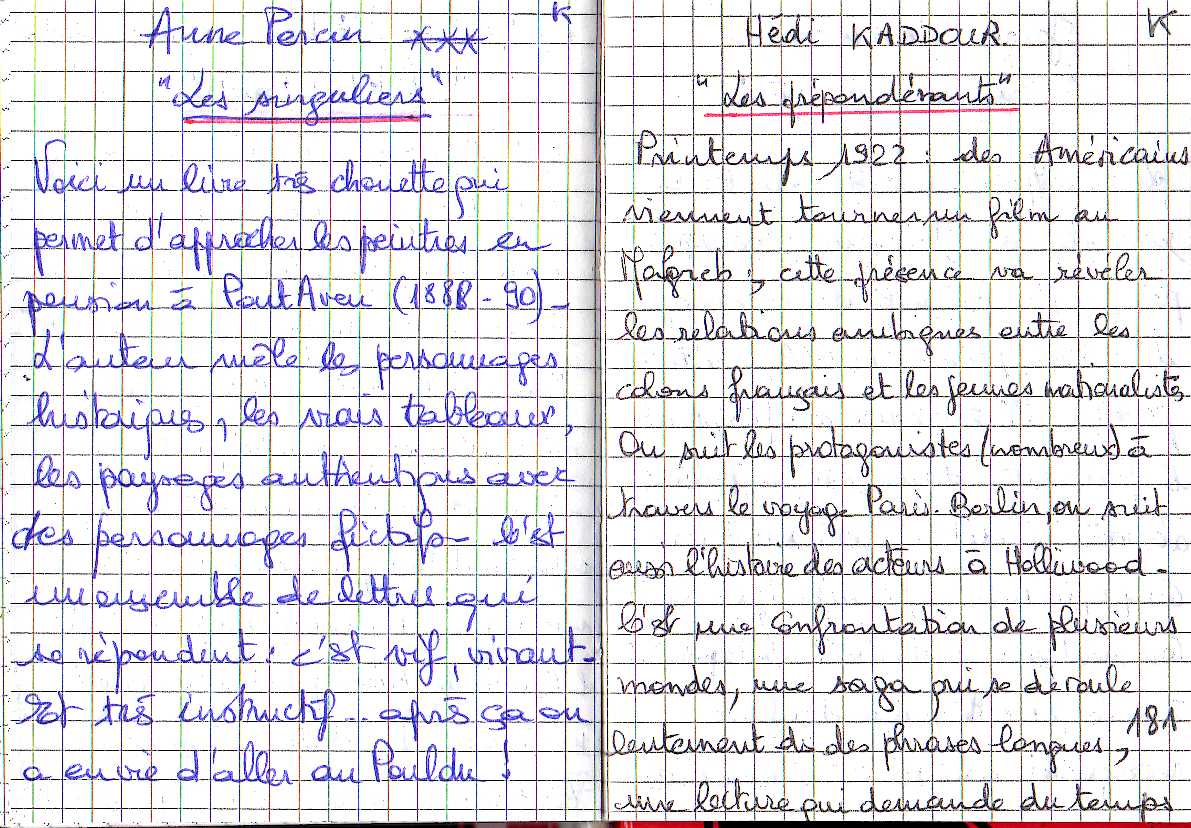 K
Anne Percin ***
"Les singuliers"
Voici un livre très chouette qui
permet d'approcher les peintres en
pension à Pont Aven (1888-90)-
L'auteur mêle les personnages
historiques, les vrais tableaux,
les paysages authentiques avec
des personnages fictifs- C'est
un ensemble de lettres qui
se répondent : c'est vif, vivant-
Et très instructif.. après ça on
a envie d'aller au Pouldu !
K
Hédi KADDOUR.
"Les prépondérants"
Printemps 1922 : des Américains
viennent tourner un film au
Magreb ; cette présence va révéler
les relations ambigues entre les
colons français et les jeunes nationalistes.
On suit les protagonistes (nombreux) à
travers le voyage Paris-Berlin, on suit
aussi l'histoire des acteurs à Holliwood-
C'est une confrontation de plusieurs
mondes, une saga qui se déroule
lentement ds des phrases longues,
une lecture qui demande du temps
181